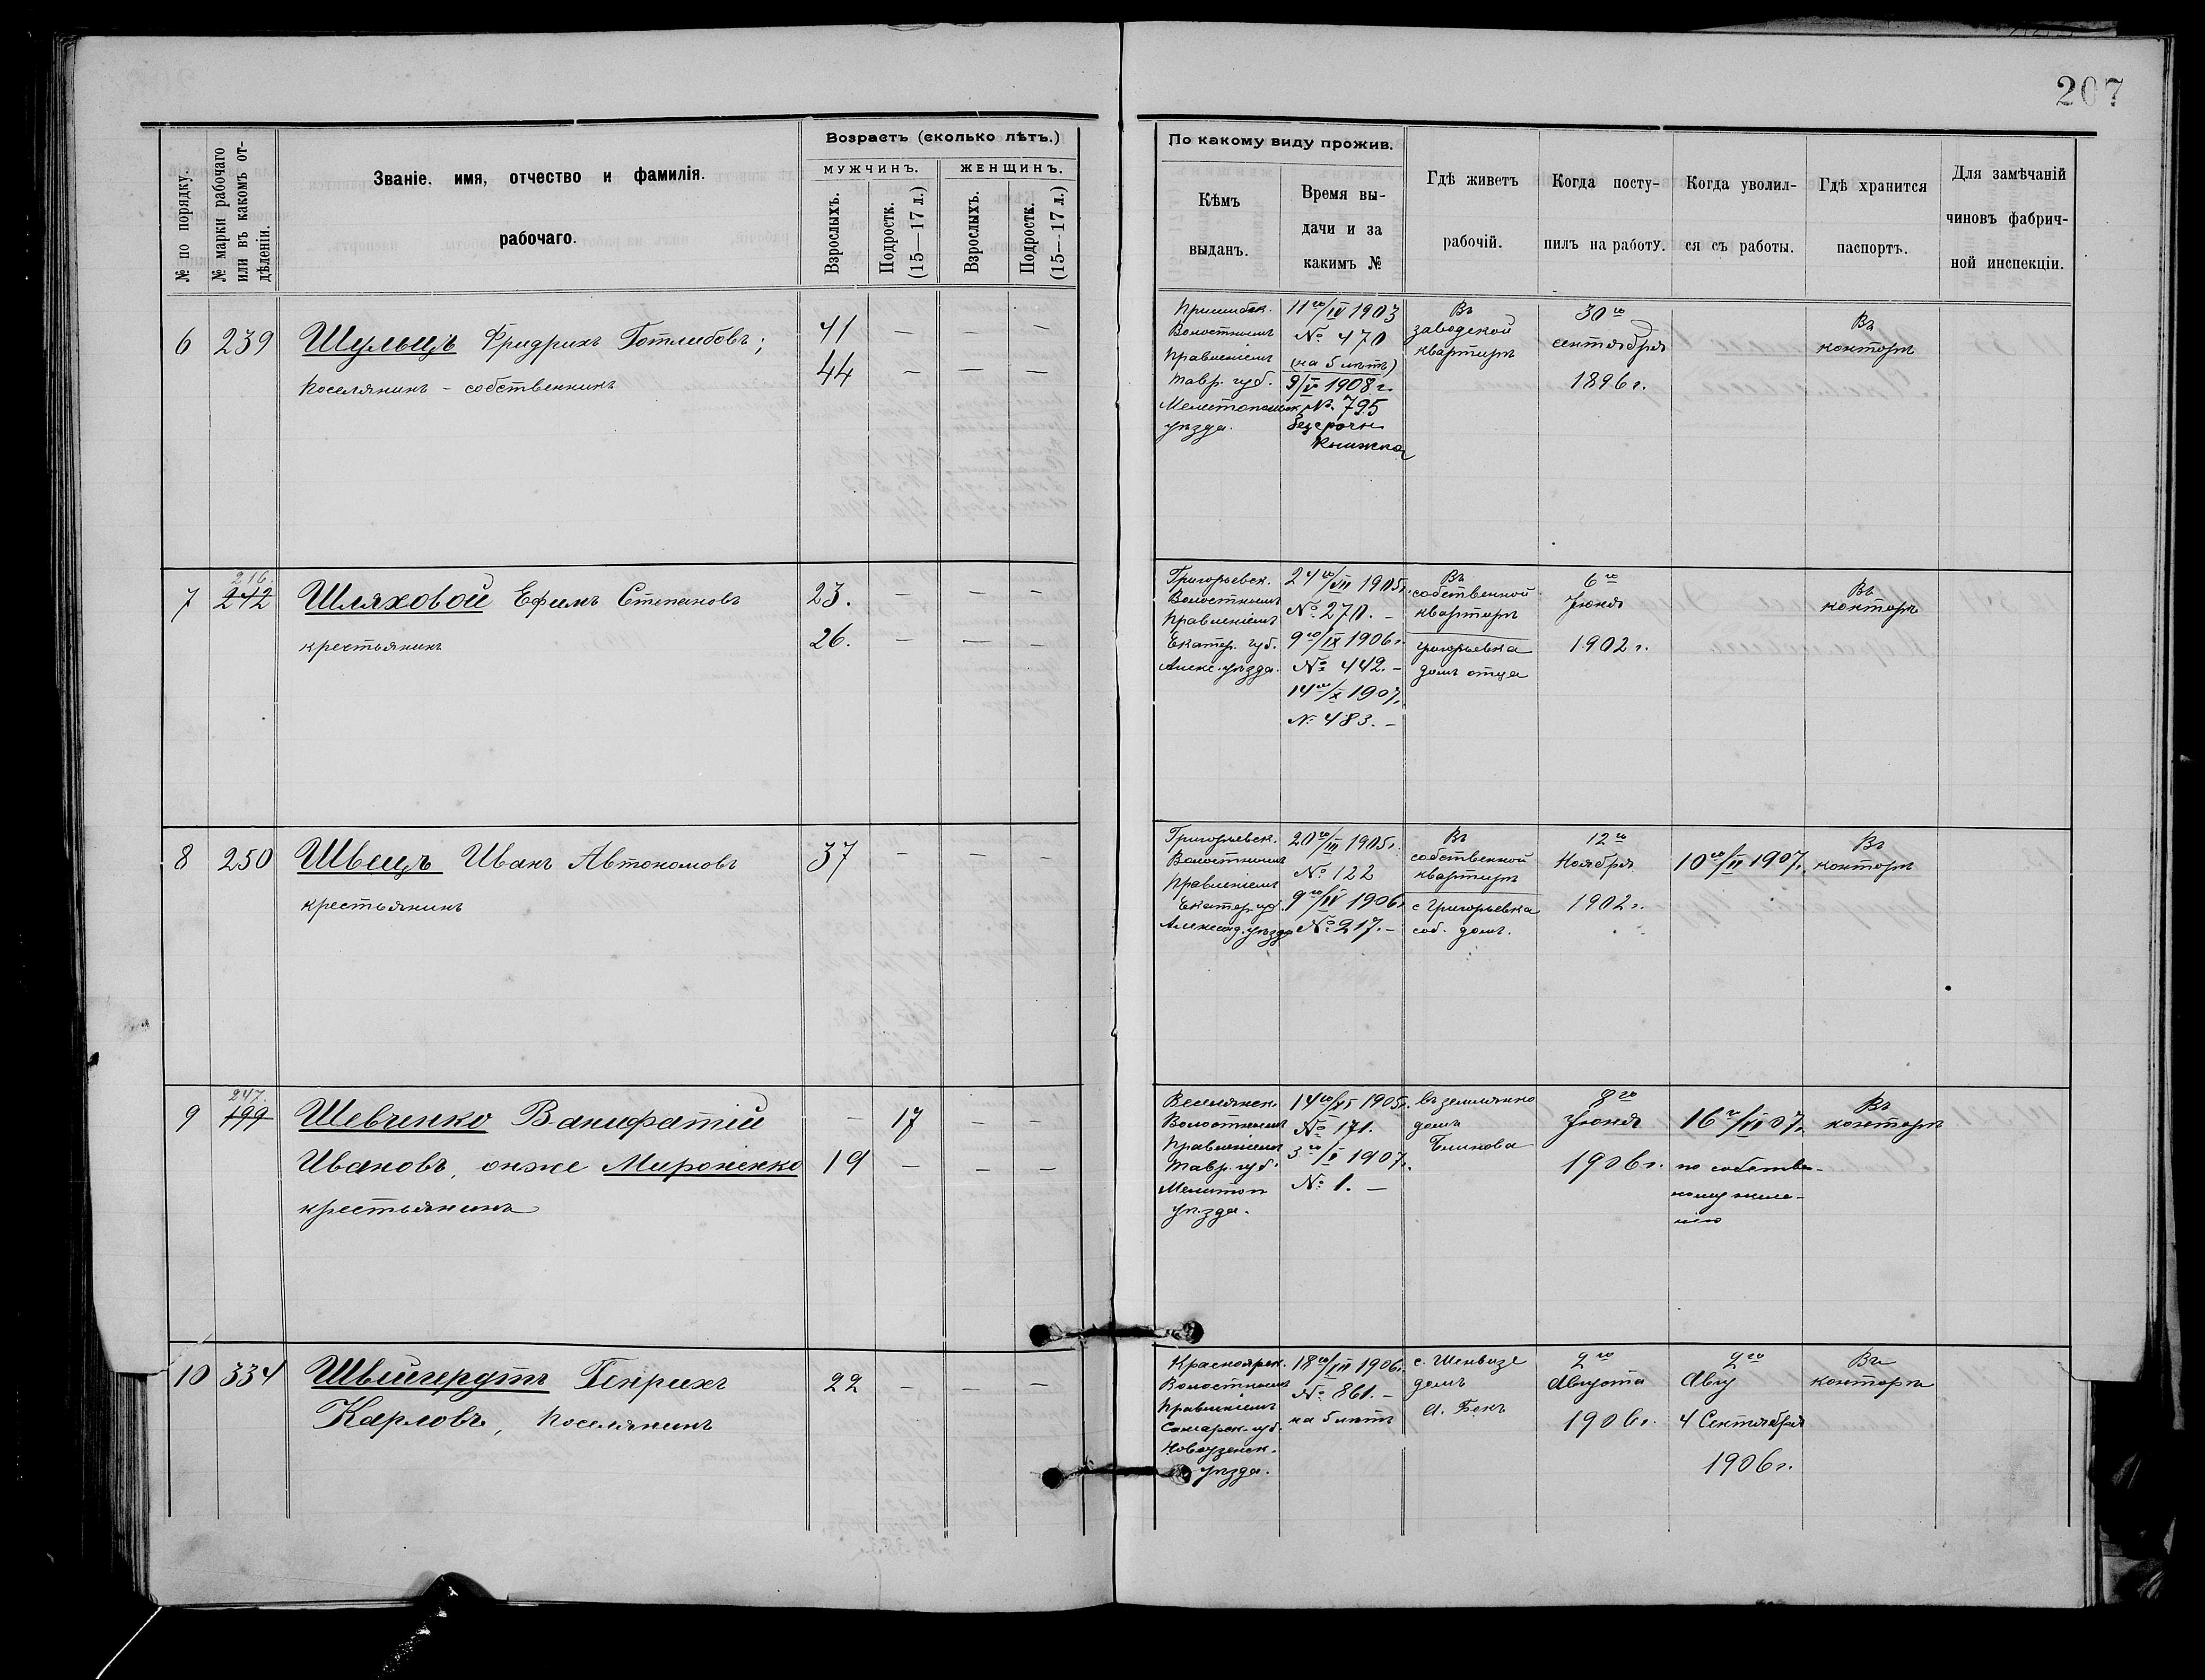 207
№ по порядку.
№ марки рабочаго или въ какомъ отдѣленіи.
Званіе, имя, отчество и фамилія.
рабочаго.
Возрастъ (сколько лѣтъ.)
МУЖЧИНЪ.
ЖЕНЩИНЪ.
Взрослыхъ.
Подростк. (15—17 л.)
Взрослыхъ.
Подростк. (15—17 л.)
По какому виду прожив.
Кѣмъ
выданъ.
Время вы-
дачи и за
какимъ №
Гдѣ живетъ
рабочій.
Когда посту-
пилъ на работу.
Когда уволил-
ся съ работы.
Гдѣ хранится
паспортъ.
Для замѣчаній
чиновъ фабрич-
ной инспекціи.
6 239 Шульцъ Фридрихъ Готлибовъ;
поселянинъ – собственникъ
41 — — —
44 — — —
Пришибск.
Волостнымъ
правленіемъ
Тавр. губ.
Мелитопольск.
уѣзда.
11го/IV 1903
№ 470
(на 5 лѣтъ)
9/V 1908 г.
№ 795
безсрочн.
книжка
Въ
заводской
квартирѣ
30го
сентября
1896 г.
Въ
конторѣ
216.
7 242 Шляховой Ефимъ Степановъ
крестьянинъ
23. — — —
26. — — —
Григорьевск.
Волостнымъ
правленіемъ
Екатер. губ.
Алекс. уѣзда.
24го/VII 1905 г.
№ 270. –
9го/IX 1906 г.
№ 442. –
14го/X 1907 г.
№ 483. –
Въ
собственной
квартирѣ
Григорьевка
домъ отца
6го
Іюня
1902 г.
Въ
конторѣ
8 250 Швецъ Иванъ Автономовъ
крестьянинъ
37 — — —
Григорьевск.
Волостнымъ
правленіемъ
Екатер. губ.
Александ. уѣзда
20го/III 1905 г.
№ 122
9го/IV 1906 г.
№ 217. –
Въ
собственной
квартирѣ
с Григорьевка
соб. домъ.
12го
Ноября
1902 г.
10го/II 1907 г.
Въ
конторѣ
247.
9 199 Шевченко Ванифатій
Ивановъ, онже Мироненко
крестьянинъ
— 17 — —
19 — — —
Веселянск.
Волостнымъ
правленіемъ
Тавр. губ.
Мелитоп
уѣзда.
14го/VI 1905 г.
№ 171.
3го/I 1907 г.
№ 1. –
домъ
8го
Іюня
1906 г.
по собствен-
ному жела-
нію
Въ
конторѣ
10 334 Швейгердтъ Генрихъ
Карловъ, поселянинъ
22 — — —
Красноярск.
Волостнымъ
правленіемъ
Самарск. губ.
Новоузенск.
уѣзда.
№ 861. –
на 5 лѣтъ
с. Шенвизе
домъ
А. Бекъ
2го
Августа
1906 г.
2го
Авгу
4 Сентября
1906 г.
Въ
конторѣ